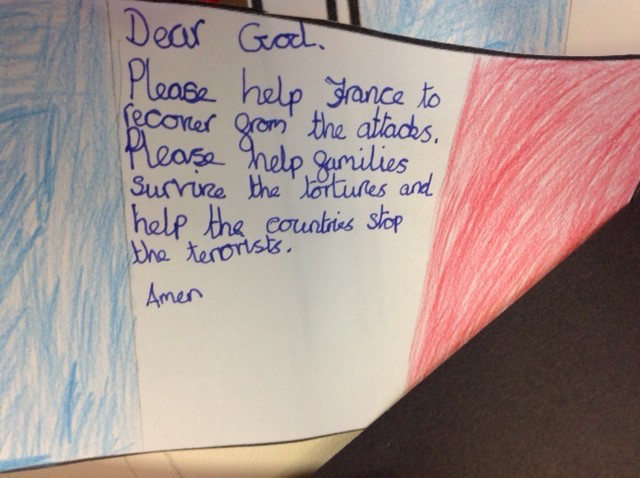 Dear God.
Please help France to
recover from the attacks.
Please help families
survive the tortures and
help the countries stop
the terorists.
Amen